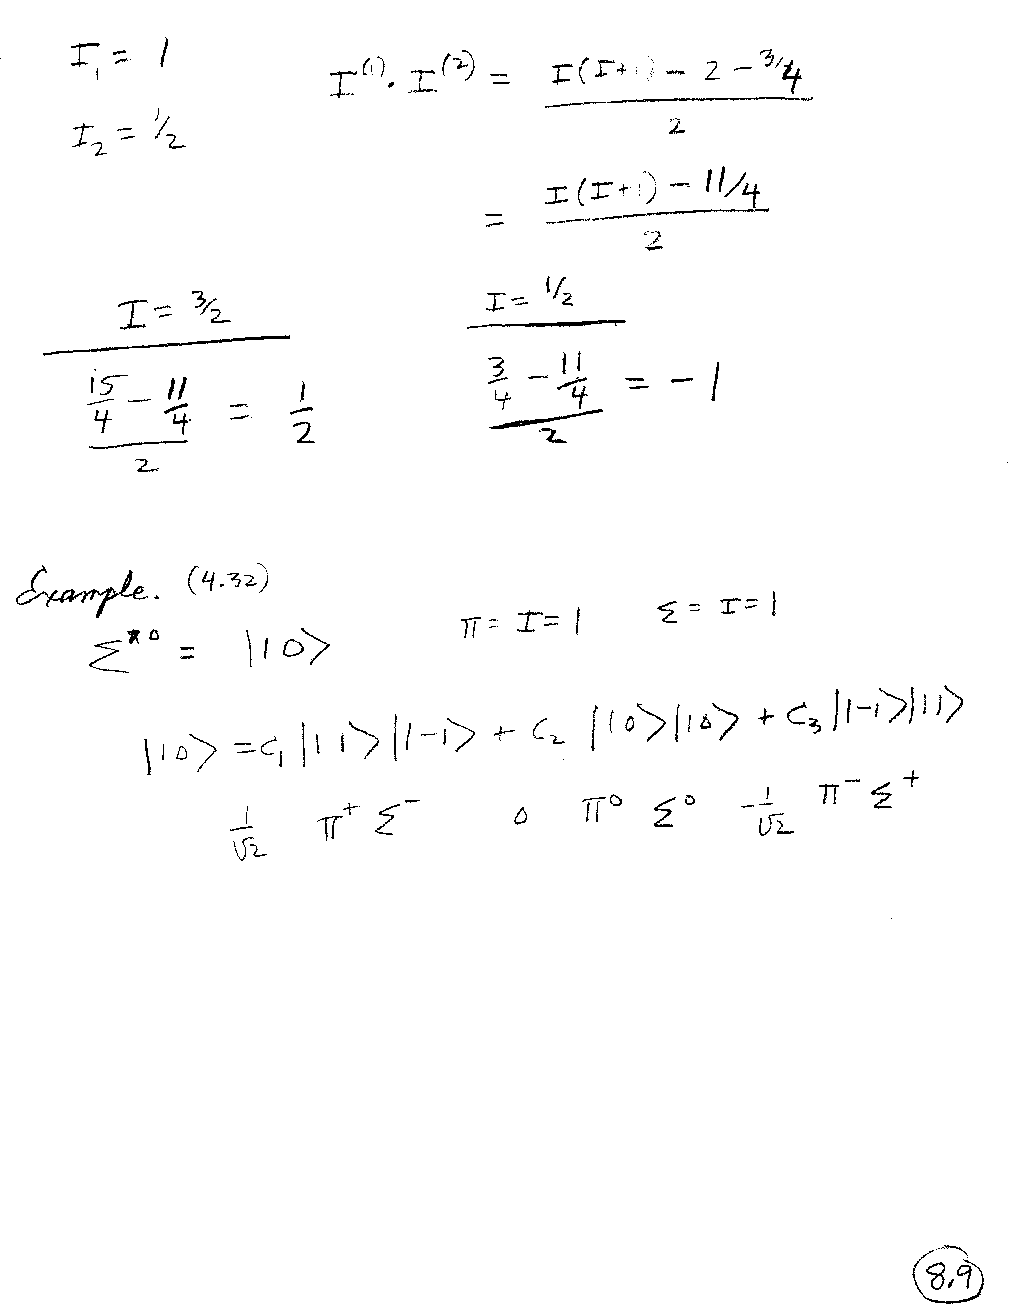 I₁ = 1
I⁽¹⁾·I⁽²⁾ = (I(I+1) - 2 - 3/4) / 2
I₂ = 1/2
= (I(I+1) - 11/4) / 2
I = 3/2
I = 1/2
(15/4 - 11/4) / 2 = 1/2
(3/4 - 11/4) / 2 = -1
Example. (4.32)
Σ*⁰ = |10⟩
π = I=1
Σ = I=1
|10⟩ = C₁|11⟩|1-1⟩ + C₂|10⟩|10⟩ + C₃|1-1⟩|11⟩
1/√2 π⁺Σ⁻ 0 π⁰Σ⁰ -1/√2 π⁻Σ⁺
8.9